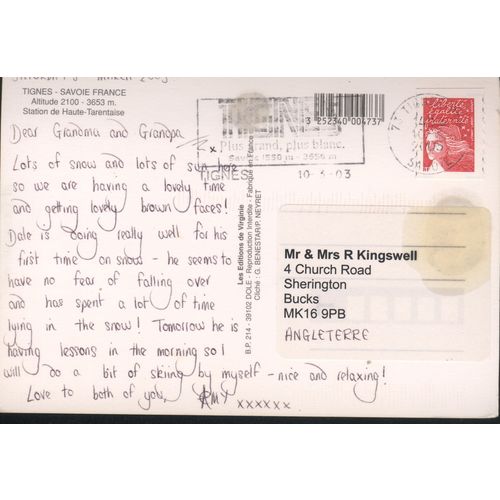 SATURDAY MARCH 2003
TIGNES - SAVOIE FRANCE
Altitude 2100 - 3653 m.
Station de Haute-Tarentaise
Dear Grandma and Grandpa,
Lots of snow and lots of sun here
so we are having a lovely time
and getting lovely brown faces!
Dale is doing really well for his
first time on snow - he seems to
have no fear of falling over
and has spent a lot of time
lying in the snow! Tomorrow he is
having lessons in the morning so I
will do a bit of skiing by myself - nice and relaxing!
Love to both of you, AMY xxxxxx
Les Editions de Virginie
B.P. 214 - 39102 DOLE - Reproduction Interdite - Fabriqué en France
Cliché : G. BENESTAR/P. NEYRET
3 252340 004737
TIGNES
Plus grand, plus blanc.
Savoie 1550 m - 3656 m
TIGNES 10-3-03
Liberté
égalité
fraternité
Mr & Mrs R Kingswell
4 Church Road
Sherington
Bucks
MK16 9PB
ANGLETERRE